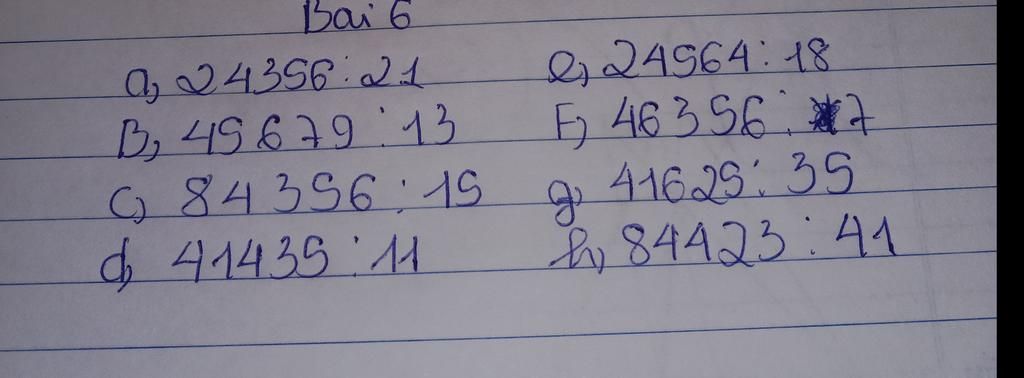 Bai 6
a, 24356 : 21 e, 24564 : 18
B, 45679 : 13 F, 46356 : 7
c, 84356 : 15 g, 41625 : 35
d, 41435 : 11 h, 84423 : 41